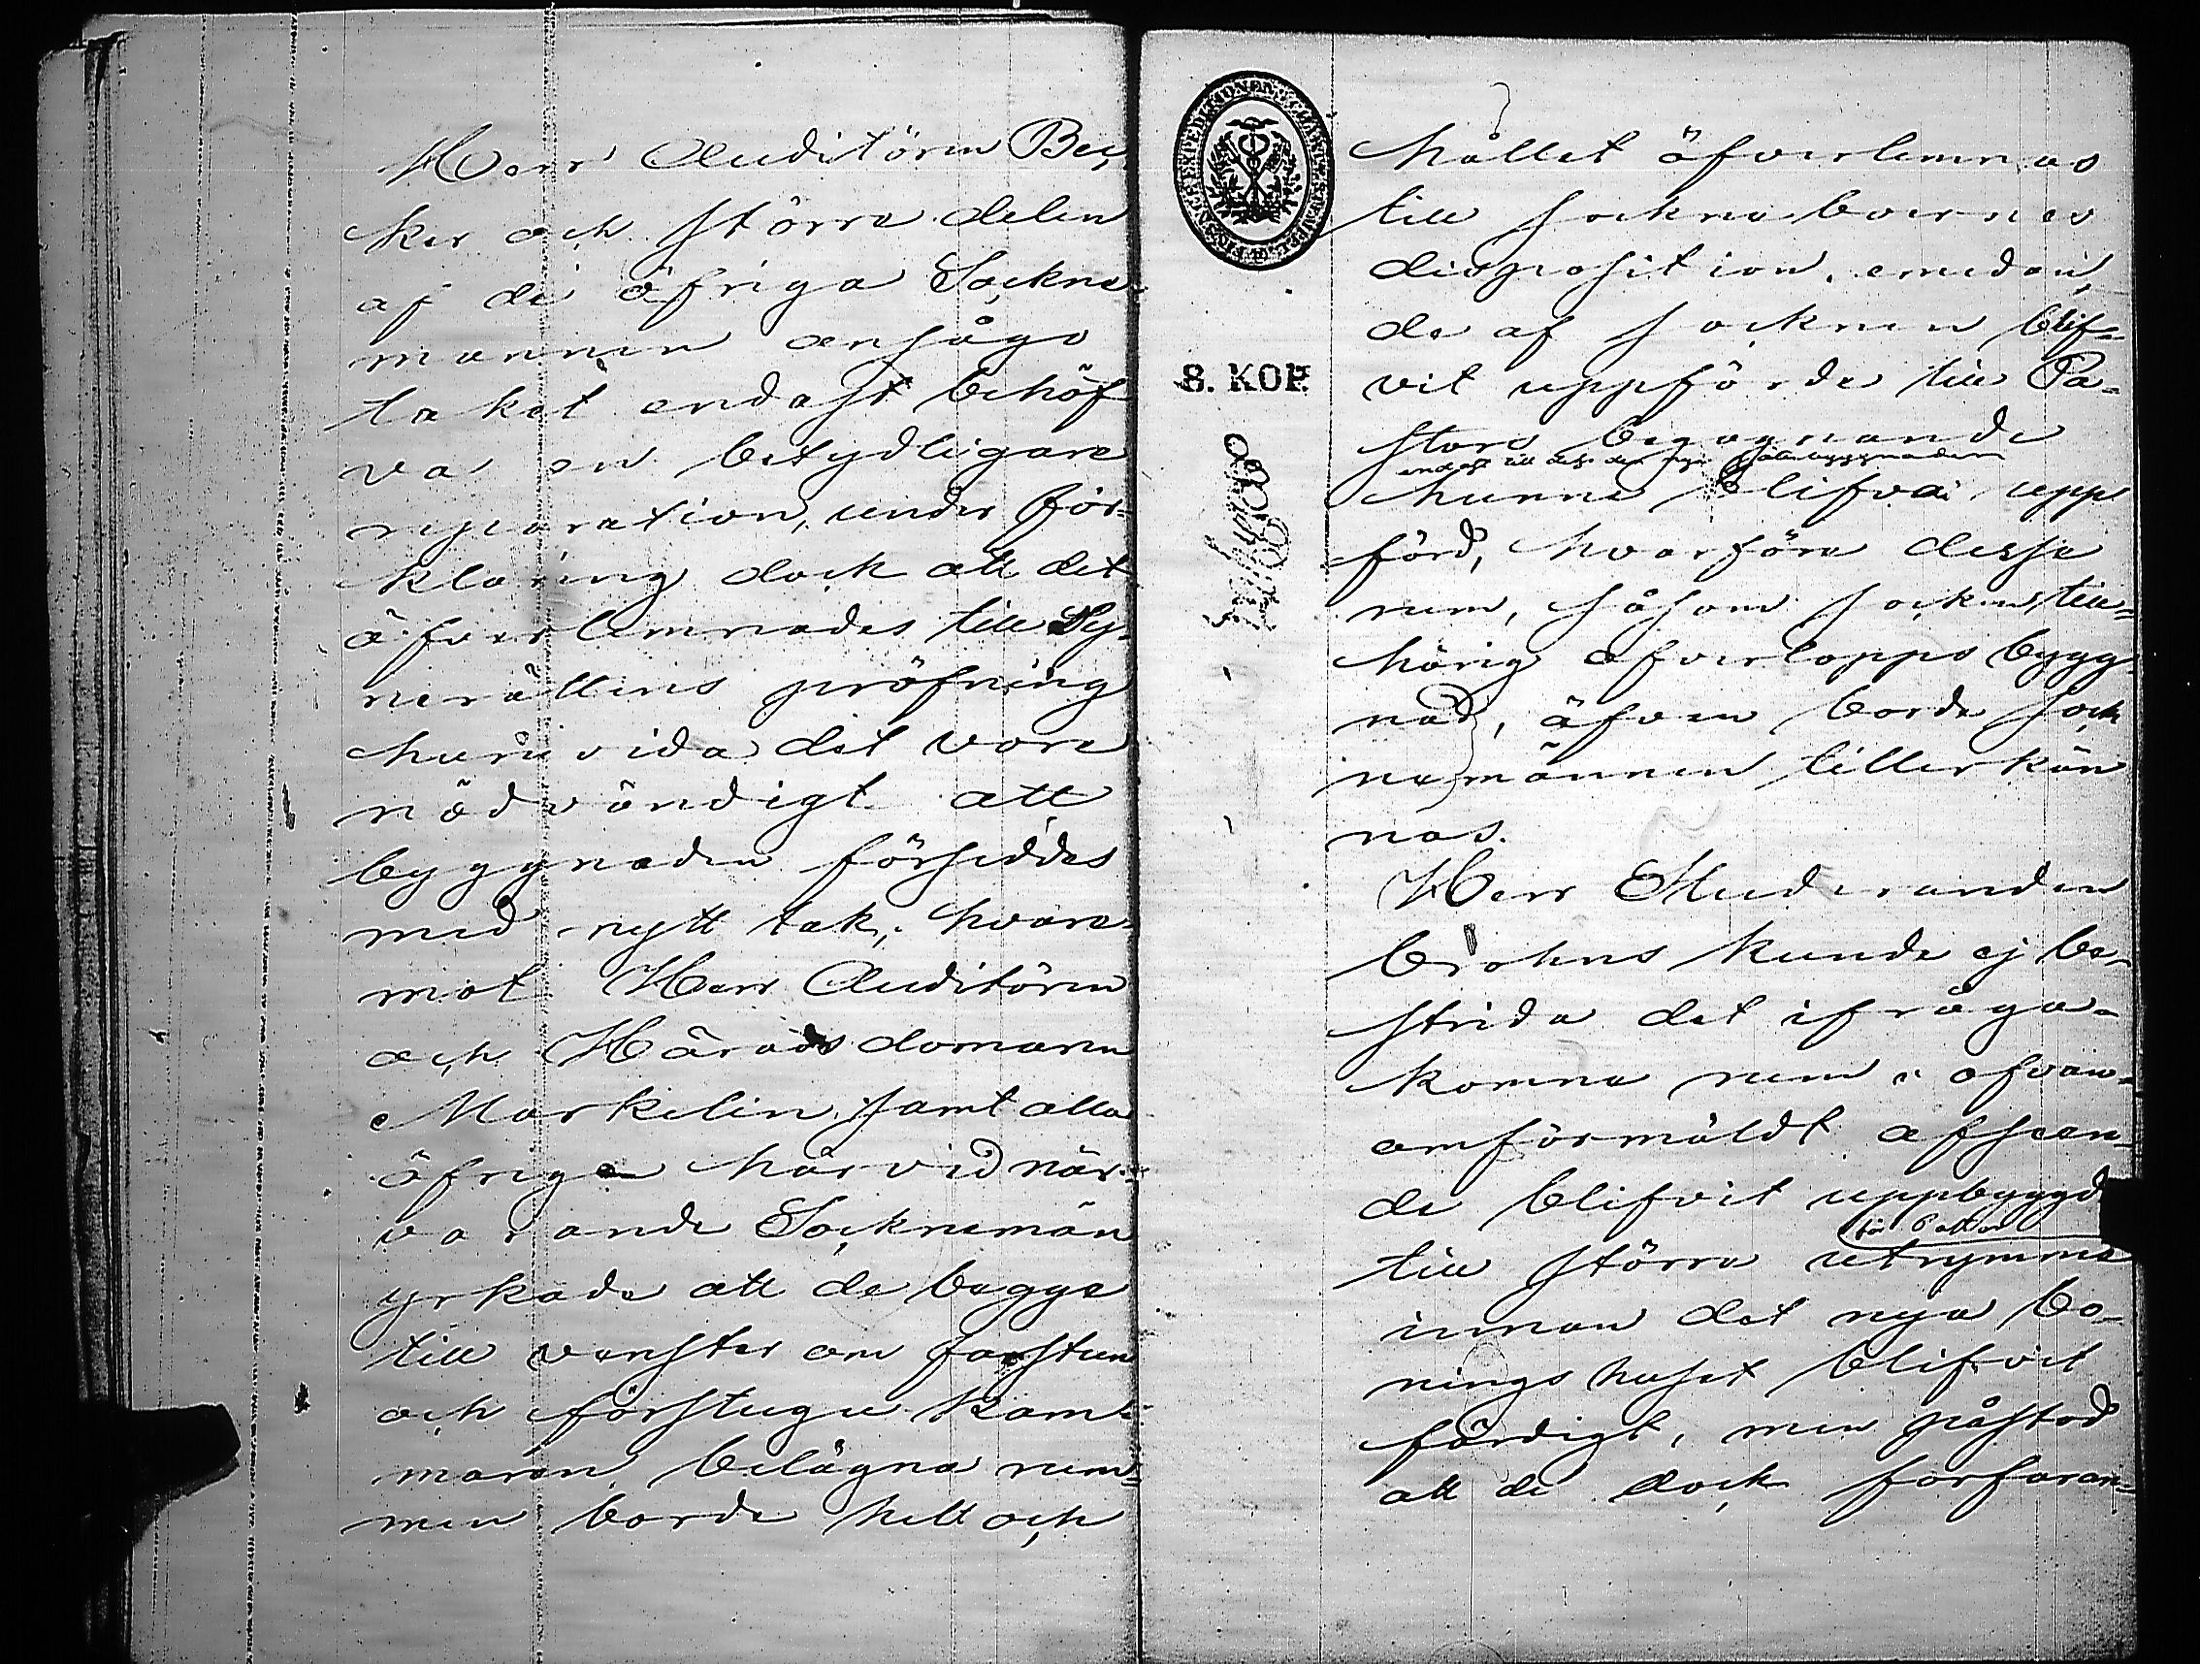 Herr Auditören Bec,
ker och större delen
af de öfriga Sockne-
männen ansågo
taket endast behöf
va en betydligare
reparation, under för-
klaring dock att det
öfverlemnades till Sy-
nerättens pröfning
huruvida det vore
nödvändigt att
byggnaden försiddes
med nytt tak, hvare-
mot Herr Auditören
och Häradsdomaren
Markelin samt alla
öfriga härvid när-
varande Socknemän
yrkade att de begge
till venster om farstun
och förstugu kam-
maren belägna rum-
men borde helt och
hållet öfverlemnas
till Sockneboernes
disposition, emedan
de af Socknen blif-
vit uppförde till Pa-
stors begagnande
endast till dess den nya
hunne blifva upp
förd, hvarföre dessa
rum, såsom Socknen till-
hörig öfverlopps bygg-
nad, äfven borde Sock
nemännen tillerkän
nas.
Herr Studeranden
Brohns kunde ej be-
strida det ifråga-
komna rum i ofvan-
omförmäldt afseen-
de blifvit uppbyggd
för Pastor
till större utrymme
innan det nya bo-
ningshuset blifvit
färdigt, men påstod
att de dock forfaran-
8. KOP.